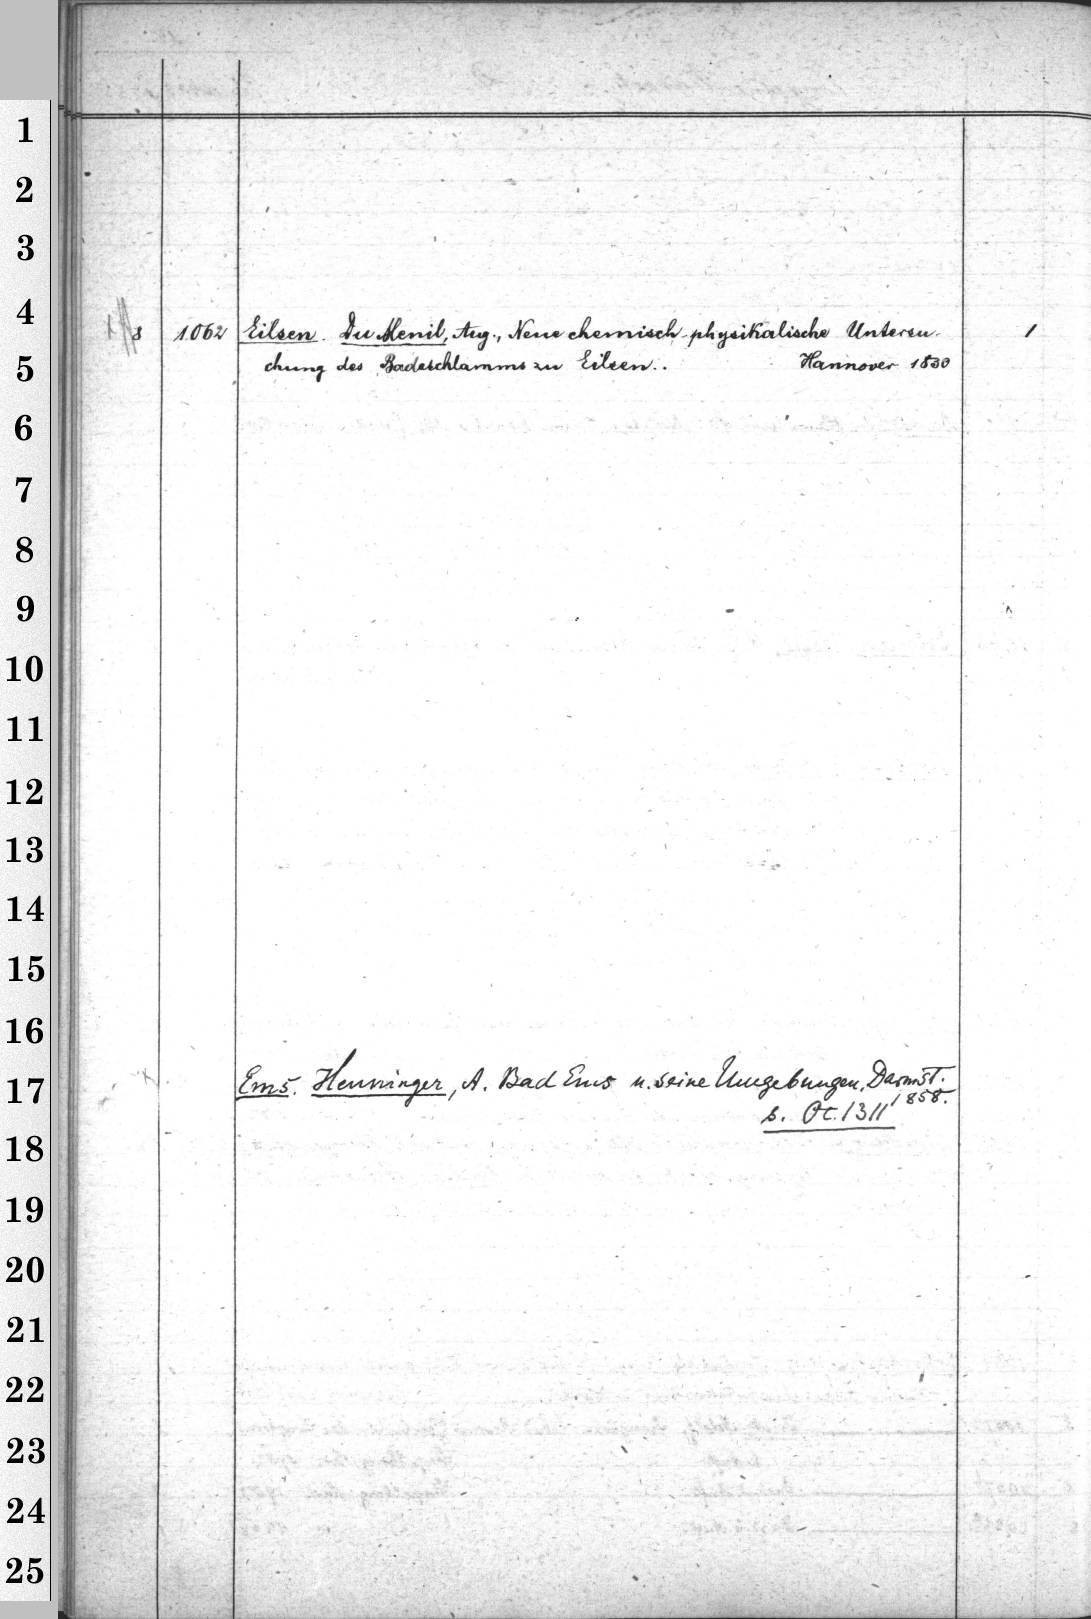 1
2
3
4
8 1062 Eilsen. Du Menil, Aug., Neue chemisch-physikalische Untersu- 1
5
chung des Badeschlamms zu Eilsen.. Hannover 1830
6
7
8
9
10
11
12
13
14
15
16
17
Ems. Henninger, A. Bad Ems u. seine Umgebungen, Darmst.
1858.
s. Oc. 1311
18
19
20
21
22
23
24
25